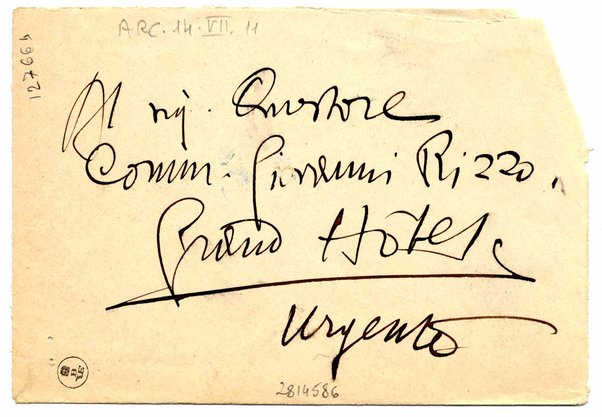 ARC. 14. VII. 11
12766b
Al sig. Questore
Comm. Giovanni Rizzo,
Grand Hôtel
Urgente
2814586